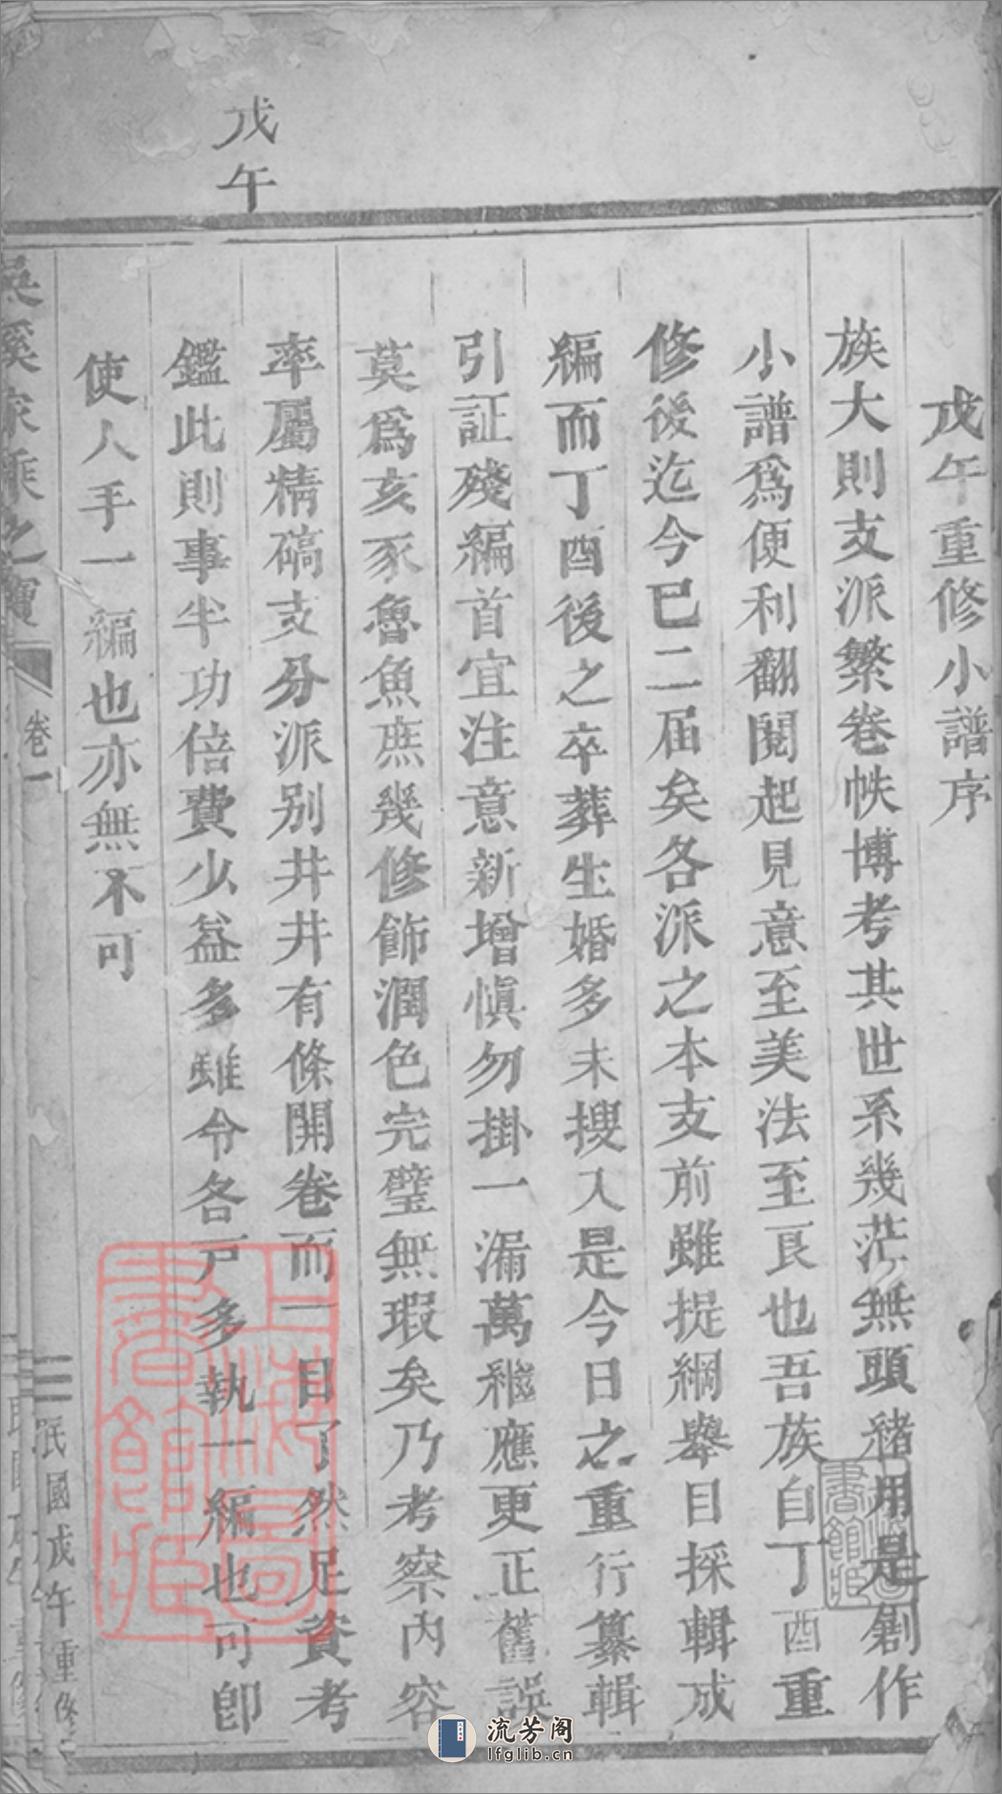 戊午
戊午重修小譜序
族大則支派繁卷帙博考其世系幾茫無頭緒用是創作
小譜爲便利翻閱起見意至美法至良也吾族自丁酉重
修後迄今已二屆矣各派之本支前雖提綱舉目採輯成
編而丁酉後之卒葬生婚多未搜入是今日之重行纂輯
引証殘編首宜注意新增愼勿掛一漏萬秪應更正舊誤
莫爲亥豕魯魚庶幾修飾潤色完璧無瑕矣乃考察內容
率屬精碻支分派別井井有條開卷而一目了然足資考
鑑此則事半功倍費少益多雖令各戸多執一編也可卽
使人手一編也亦無不可
吳溪家乘之寶
卷一
民國戊午重修
上海圖書館藏
流芳阁
lfglib.cn